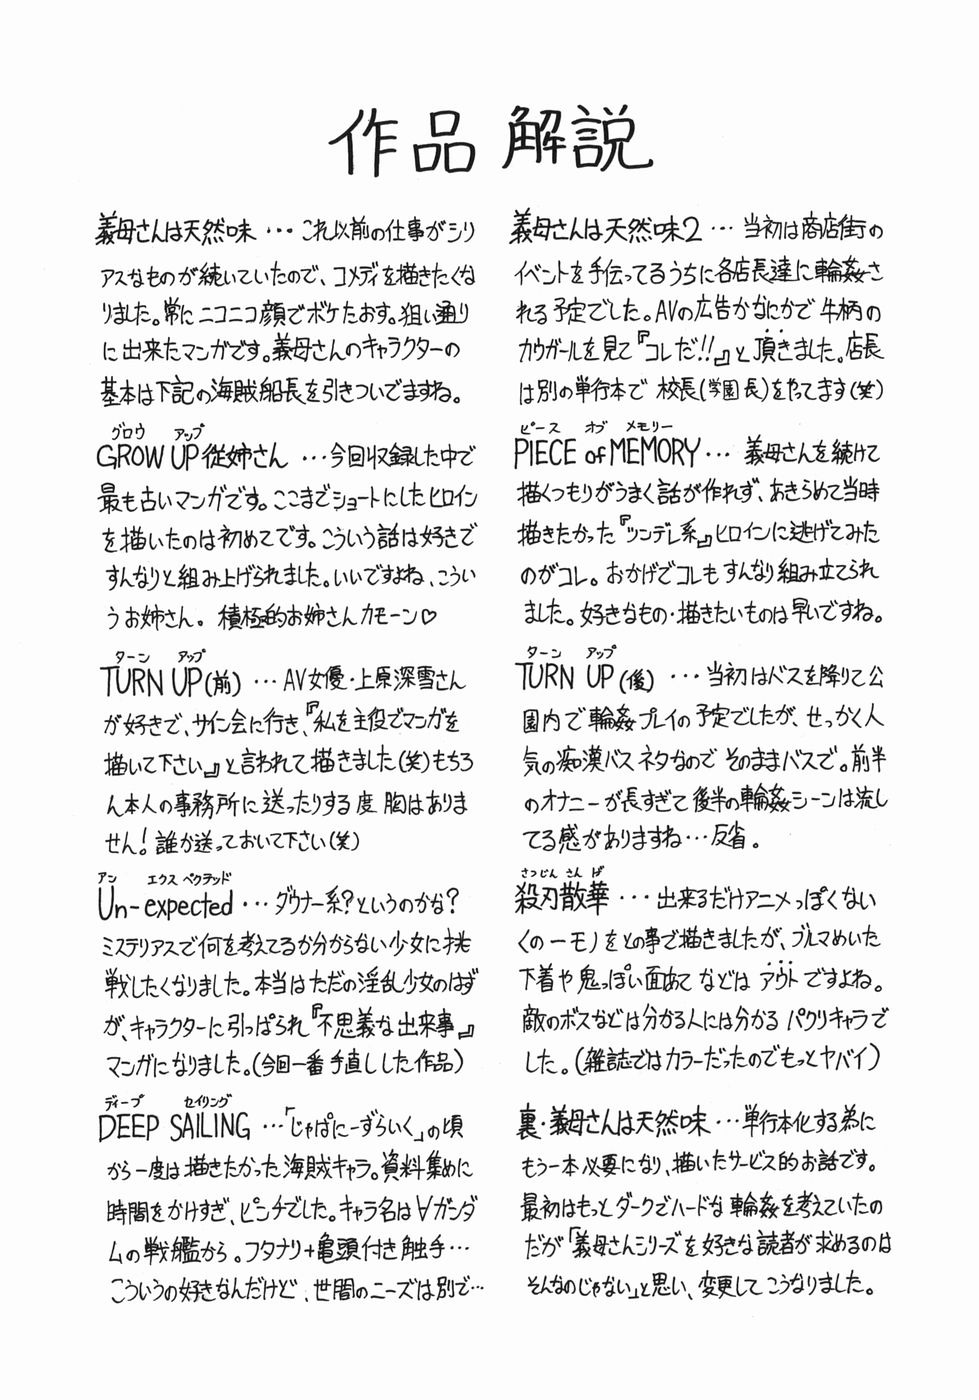 作品解説
義母さんは天然味・・・これ以前の仕事がシリ
アスなものが続いていたので、コメディを描きたくな
りました。常にニコニコ顔でボケたおす。狙い通り
に出来たマンガです。義母さんのキャラクターの
基本は下記の海賊船長を引きついでますね。
グロウ アップ
GROW UP従姉さん ・・・今回収録した中で
最も古いマンガです。ここまでショートにしたヒロイン
を描いたのは初めてです。こういう話は好きで
すんなりと組み上げられました。いいですよね、こうい
うお姉さん。積極的お姉さんカモーン♡
ターン アップ
TURN UP(前) ・・・AV女優・上原深雪さん
が好きで、サイン会に行き、『私を主役でマンガを
描いて下さい』と言われて描きました(笑)もちろ
ん本人の事務所に送ったりする度胸はありま
せん!誰か送っておいて下さい(笑)
アン エクスペクテッド
Un-expected・・・ダウナー系?というのかな?
ミステリアスで何を考えてるか分からない少女に挑
戦したくなりました。本当はただの淫乱少女のはず
が、キャラクターに引っぱられ『不思議な出来事』
マンガになりました。(今回一番手直しした作品)
ディープ セイリング
DEEP SAILING・・・「じゃぱにーずらいく」の頃
から一度は描きたかった海賊キャラ。資料集めに
時間をかけすぎ、ピンチでした。キャラ名は∀ガンダ
ムの戦艦から。フタナリ+亀頭付き触手・・・
こういうの好きなんだけど、世間のニーズは別で・・・
義母さんは天然味2・・・当初は商店街の
イベントを手伝ってるうちに各店長達に輪姦さ
れる予定でした。AVの広告かなにかで牛柄の
カウガールを見て『コレだ!!』と頂きました。店長
は別の単行本で校長(学園長)をやてます(笑)
ピース オブ メモリー
PIECE of MEMORY・・・義母さんを続けて
描くつもりがうまく話が作れず、あきらめて当時
描きたかった『ツンデレ系』ヒロインに逃げてみた
のがコレ。おかげでコレもすんなり組み立てられ
ました。好きなもの・描きたいものは早いですね。
ターン アップ
TURN UP(後)・・・当初はバスを降りて公
園内で輪姦プレイの予定でしたが、せっかく人
気の痴漢バスネタなのでそのままバスで。前半
のオナニーが長すぎて後半の輪姦シーンは流し
てる感がありますね・・・反省。
さつじん さんげ
殺刃散華・・・出来るだけアニメっぽくない
くの一モノをとの事で描きましたが、ブルマめいた
下着や鬼っぽい面あてなどはアウトですよね。
敵のボスなどは分かる人には分かるパクリキャラで
した。(雑誌ではカラーだったのでもっとヤバイ)
裏・義母さんは天然味・・・単行本化する為に
もう一本必要になり、描いたサービス的お話です。
最初はもっとダークでハードな輪姦を考えていたの
だが「義母さんシリーズを好きな読者が求めるのは
そんなのじゃない」と思い、変更してこうなりました。